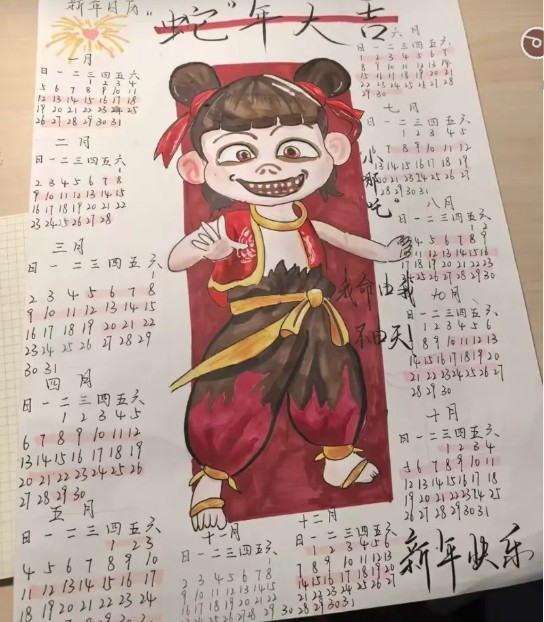 新年日历
"蛇"年大吉
一月
日一二三四五六
1 2 3 4
5 6 7 8 9 10 11
12 13 14 15 16 17 18
19 20 21 22 23 24 25
26 27 28 29 30 31
二月
日一二三四五六
1
2 3 4 5 6 7 8
9 10 11 12 13 14 15
16 17 18 19 20 21 22
23 24 25 26 27 28
三月
日一二三四五六
1
2 3 4 5 6 7 8
9 10 11 12 13 14 15
16 17 18 19 20 21 22
23 24 25 26 27 28 29
30 31
四月
日一二三四五六
1 2 3 4 5
6 7 8 9 10 11 12
13 14 15 16 17 18 19
20 21 22 23 24 25 26
27 28 29 30
五月
日一二三四五六
1 2 3
4 5 6 7 8 9 10
11 12 13 14 15 16 17
18 19 20 21 22 23 24
六月
日一二三四五六
1 2 3 4 5 6 7
8 9 10 11 12 13 14
15 16 17 18 19 20 21
22 23 24 25 26 27 28
29 30
七月
日一二三四五六
1 2 3 4 5
7 8 9 10 11 12
13 14 15 16 17 18 19
20 21 22 23 24 25 26
28 29 30 31
小哪吒"
八月
日一二三四五六
1 2
4 5 6 7 8 9
11 12 13 14 15 16
17 18 19 20 21 22 23
25 26 27 28 29 30
我命由我
不由天!
九月
日一二三四五六
1 2 3 4 5 6
8 9 10 11 12 13
14 15 16 17 18 19 20
21 22 23 24 25 26 27
28 29 30
十月
日一二三四五六
1 2 3 4
5 6 7 8 9 10 11
12 13 14 15 16 17 18
19 20 21 22 23 24 25
26 27 28 29 30 31
十一月
日一二三四五六
1
2 3 4 5 6 7 8
9 10 11 12 13 14 15
16 17 18 19 20 21 22
十二月
日一二三四五六
1 2 3 4 5 6
7 8 9 10 11 12 13
14 15 16 17 18 19 20
21 22 23 24 25 26 27
28 29 30 31
新年快乐